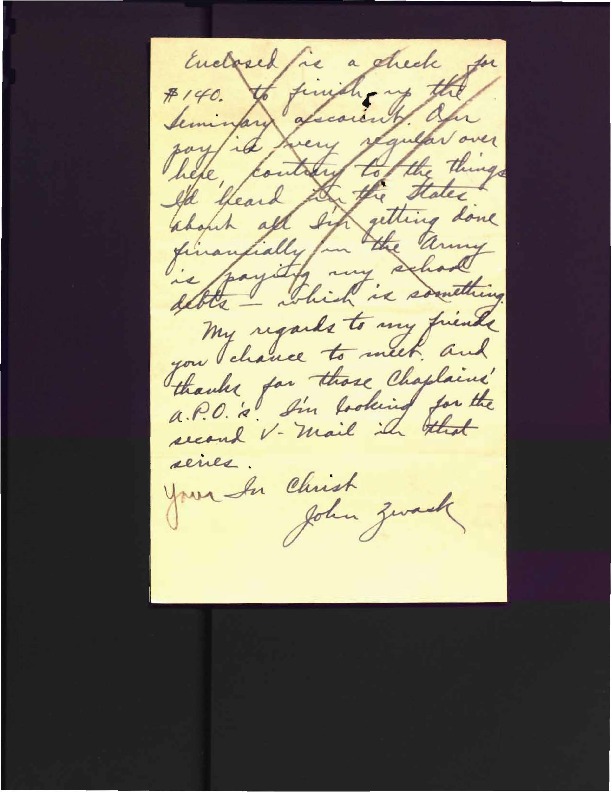 Enclosed is a check for
$140. to finish up the
Seminary account. Our
pay is very regular over
here, contrary to the things
I'd heard in the States.
about all I'm getting done
financially in the Army
is paying my school
debts — which is something.
My regards to my friends
you chance to meet. And
thanks for those Chaplains'
A.P.O.'s. I'm looking for the
second V-Mail in that
series.
Your In Christ
John Zwack